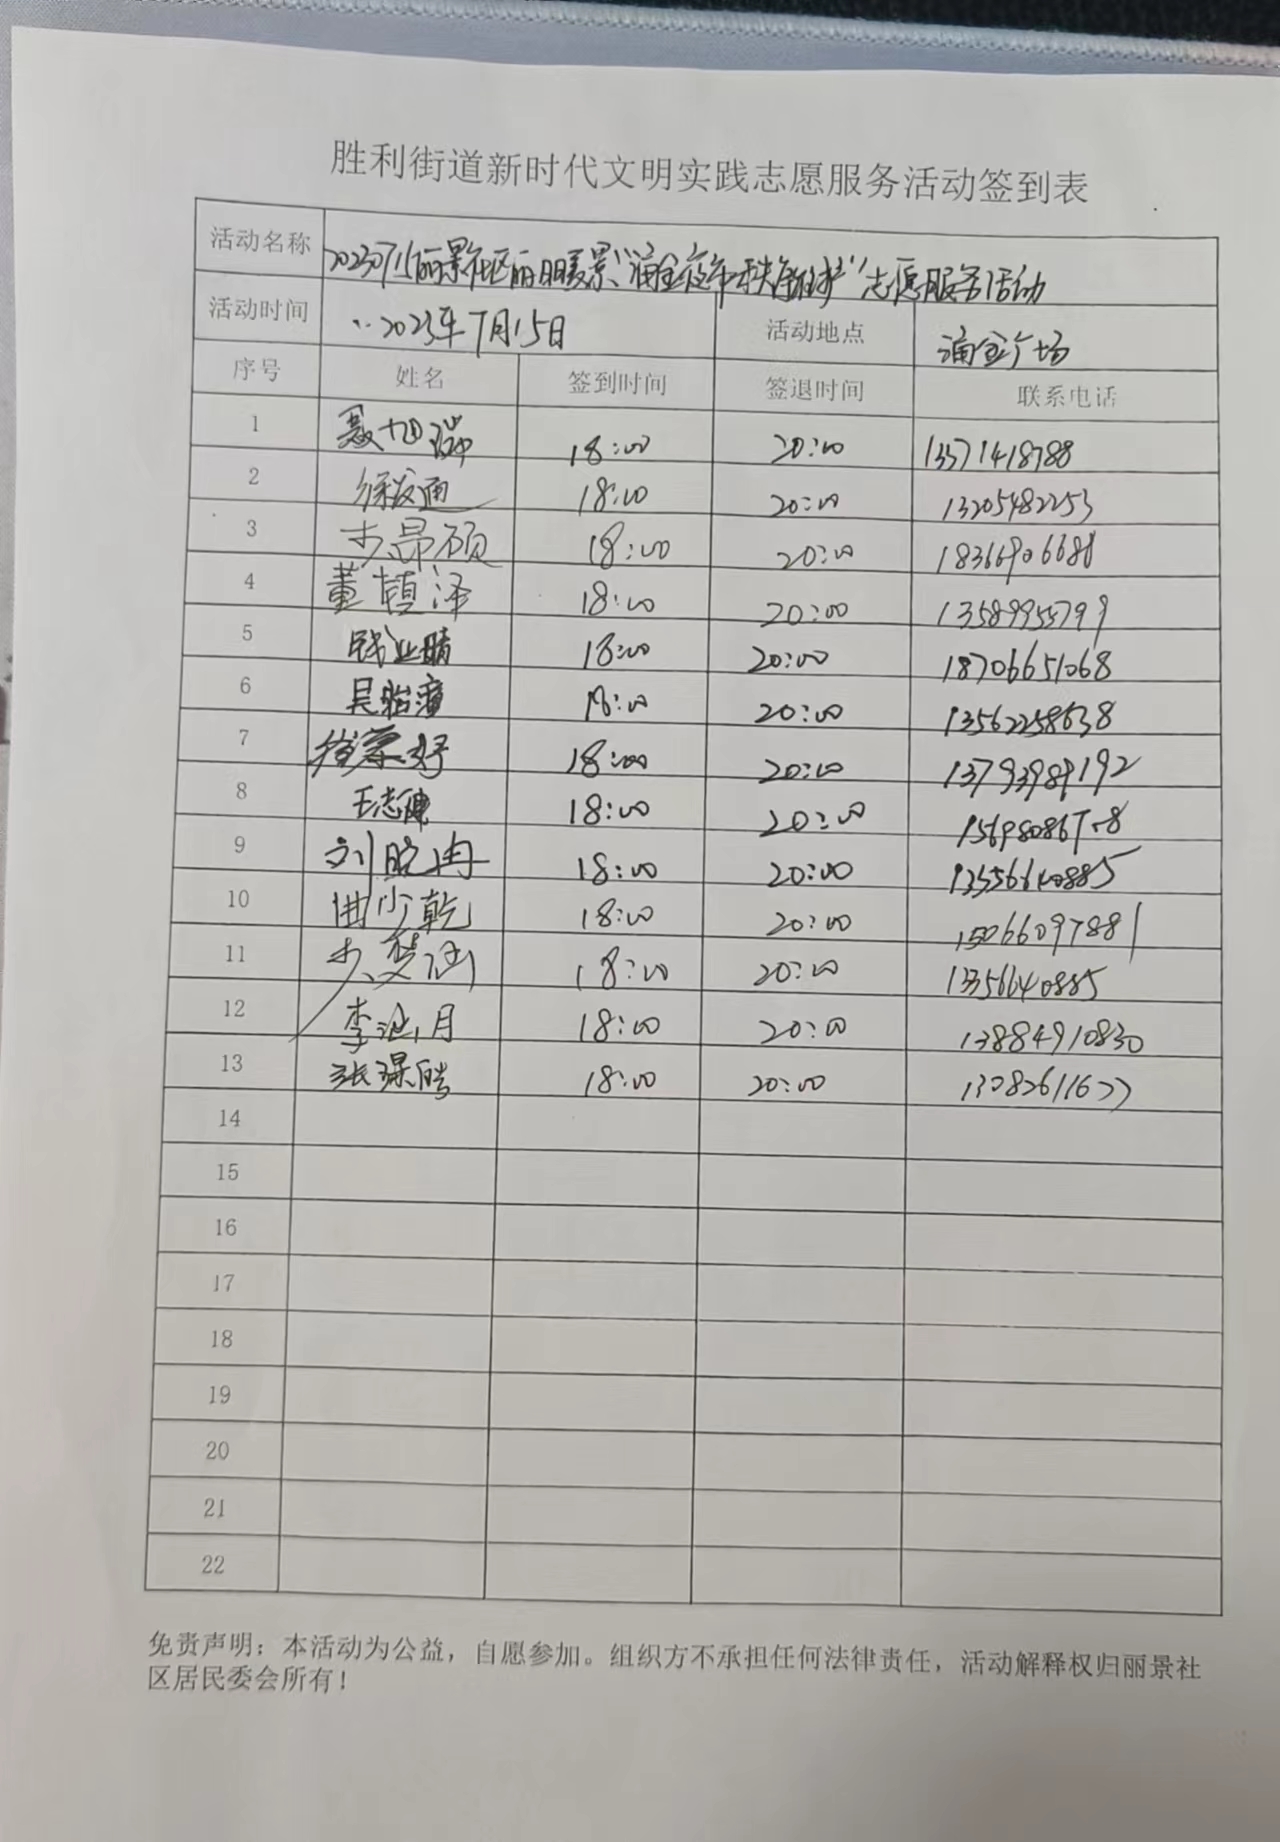 胜利街道新时代文明实践志愿服务活动签到表
活动名称 20230715丽景社区丽日暖景“涌金夜市秩序维护”志愿服务活动
活动时间 2023年7月15日 活动地点 涌金广场
序号 姓名 签到时间 签退时间 联系电话
1 聂旭瑞 18:00 20:00 13371418788
2 徐发通 18:00 20:00 13205482253
3 步昂硕 18:00 20:00 18366906686
4 董镇泽 18:00 20:00 13589955799
5 钱业晴 18:00 20:00 18706651068
6 吴怡 18:00 20:00 13562258638
7 18:00 20:00 13793989192
8 王志健 18:00 20:00 15698086708
9 刘晓冉 18:00 20:00 13356640885
10 曲少乾 18:00 20:00 15066097881
11 步楚涵 18:00 20:00 13356640885
12 李 月 18:00 20:00 13884910830
13 张 皓 18:00 20:00 13082611677
14
15
16
17
18
19
20
21
22
免责声明：本活动为公益，自愿参加。组织方不承担任何法律责任，活动解释权归丽景社
区居民委会所有！